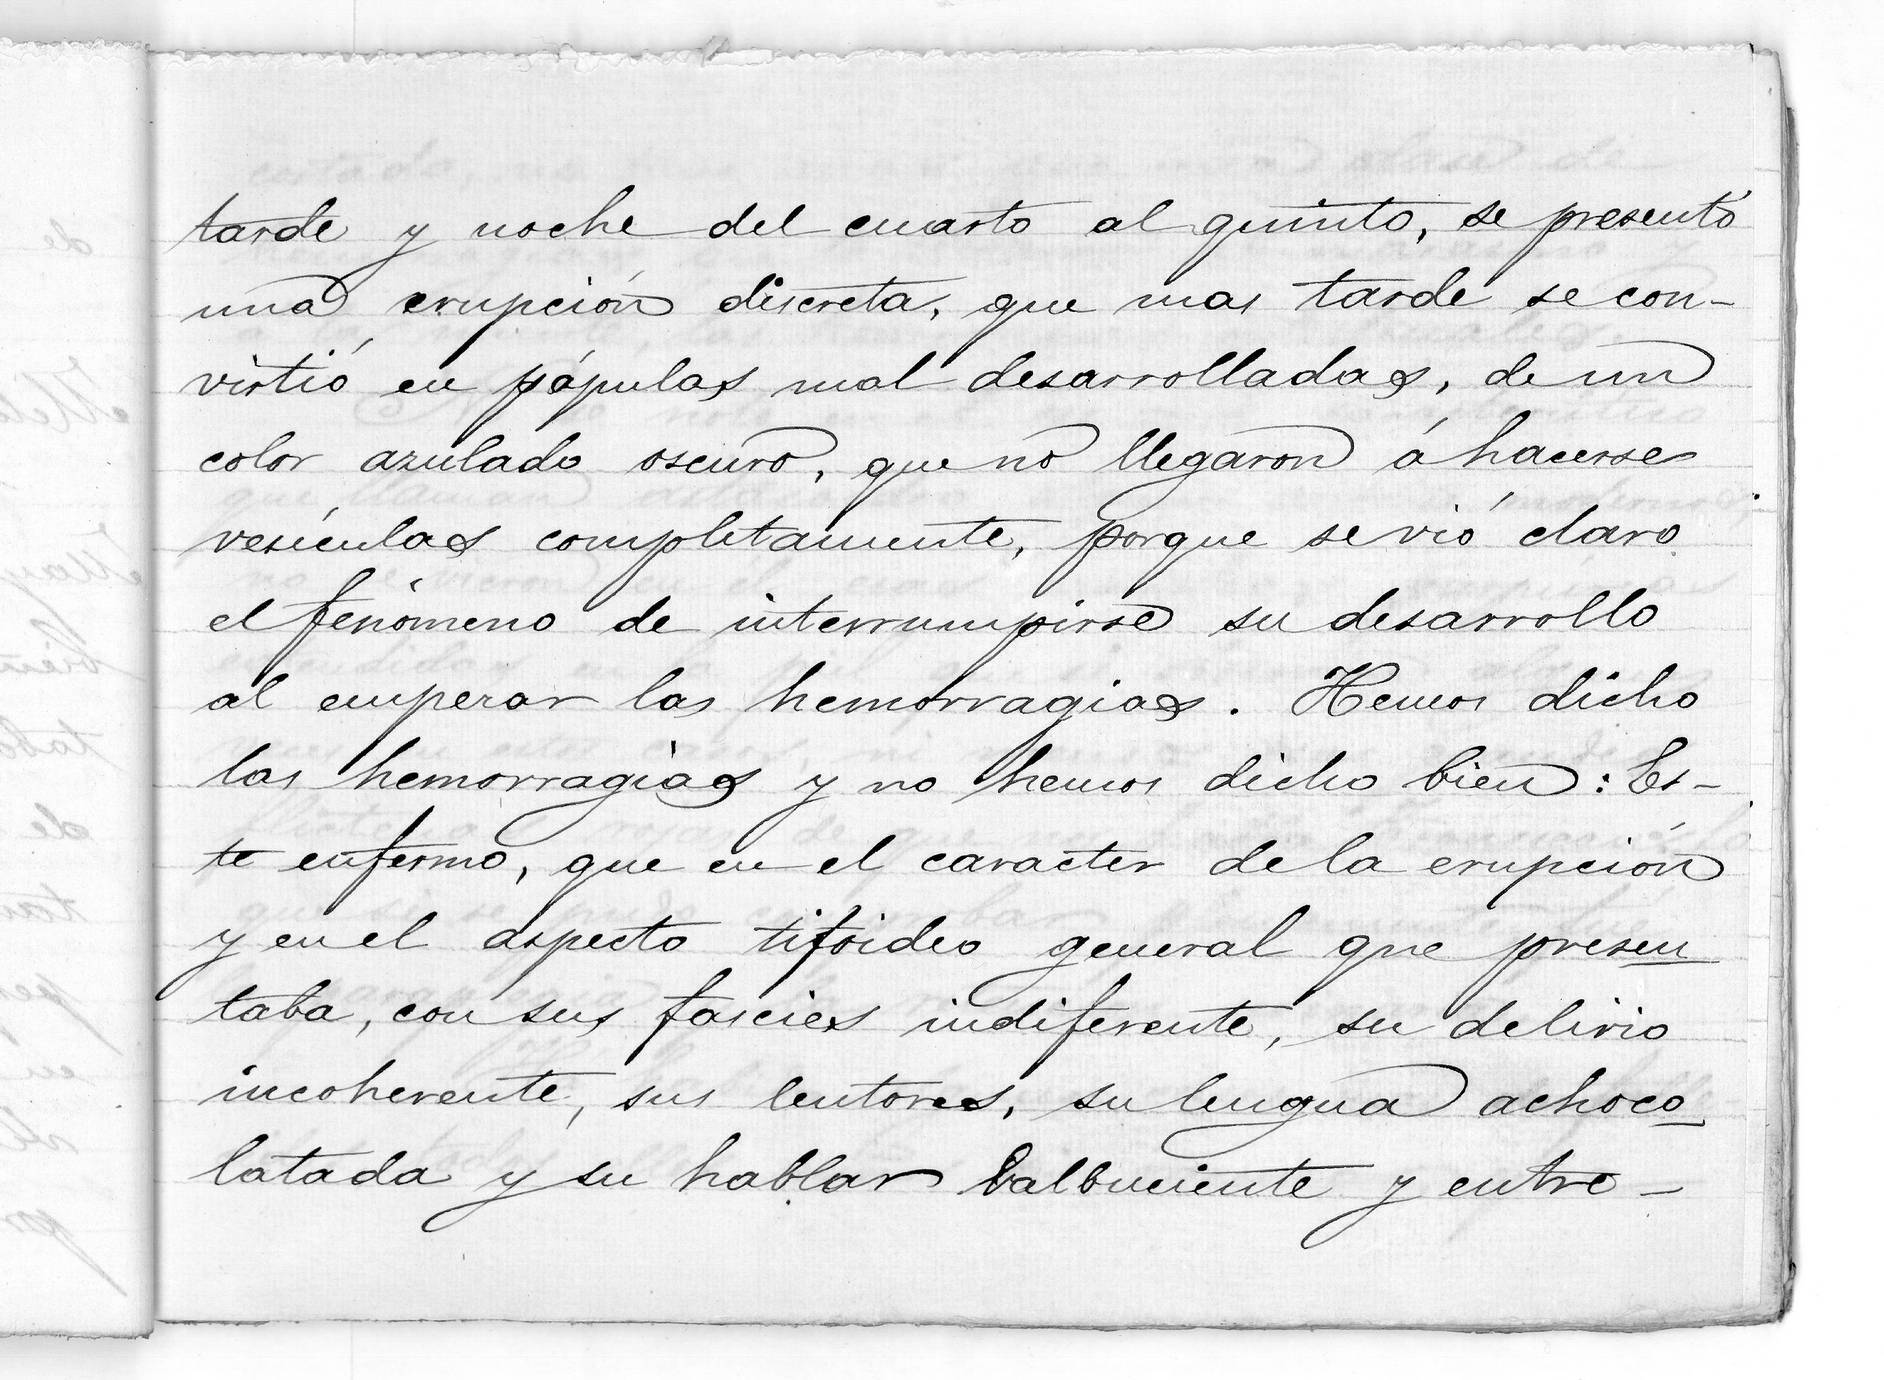 tarde y noche del cuarto al quinto, se presentó
una erupción discreta, que mas tarde se con-
virtió en pápulas mal desarrolladas, de un
color azulado oscuro, que no llegaron á hacerse
vesículas completamente, porque se vió claro
el fenómeno de interrumpirse su desarrollo
al emperar las hemorragias. Hemos dicho
las hemorragias y no hemos dicho bien: Es-
te enfermo, que en el caracter de la erupción
y en el aspecto tifoideo general que presen
taba, con sus fascies indiferente, su delirio
incoherente, sus lentores, su lengua achoco
latada y su hablar balbuciente y entre-